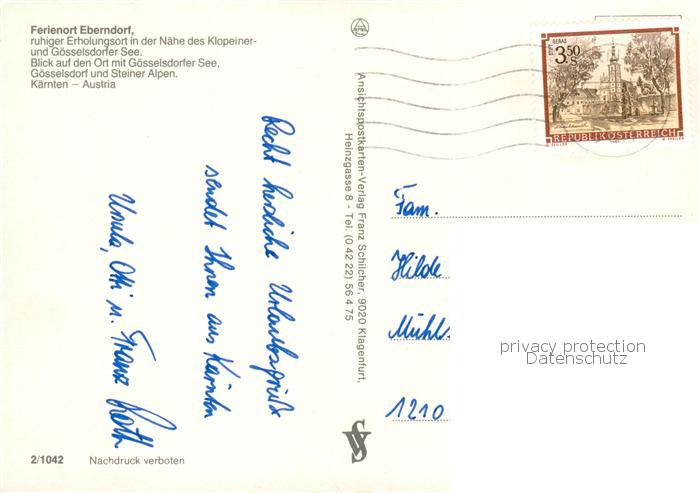 Ferienort Eberndorf,
ruhiger Erholungsort in der Nähe des Klopeiner-
und Gösselsdorfer See.
Blick auf den Ort mit Gösselsdorfer See,
Gösselsdorf und Steiner Alpen.
Kärnten – Austria
Recht herzliche Urlaubsgrüße
sendet Ihnen aus Kärnten
Ursula, Otti u. Franz Roth
2/1042 Nachdruck verboten
Ansichtspostkarten-Verlag Franz Schilcher, 9020 Klagenfurt,
Heinzgasse 8 - Tel. (0 42 22) 56 4 75
STIFT GERAS
3.50
S
REPUBLIK ÖSTERREICH
Fam.
Hilde
Mühl
1210
privacy protection
Datenschutz